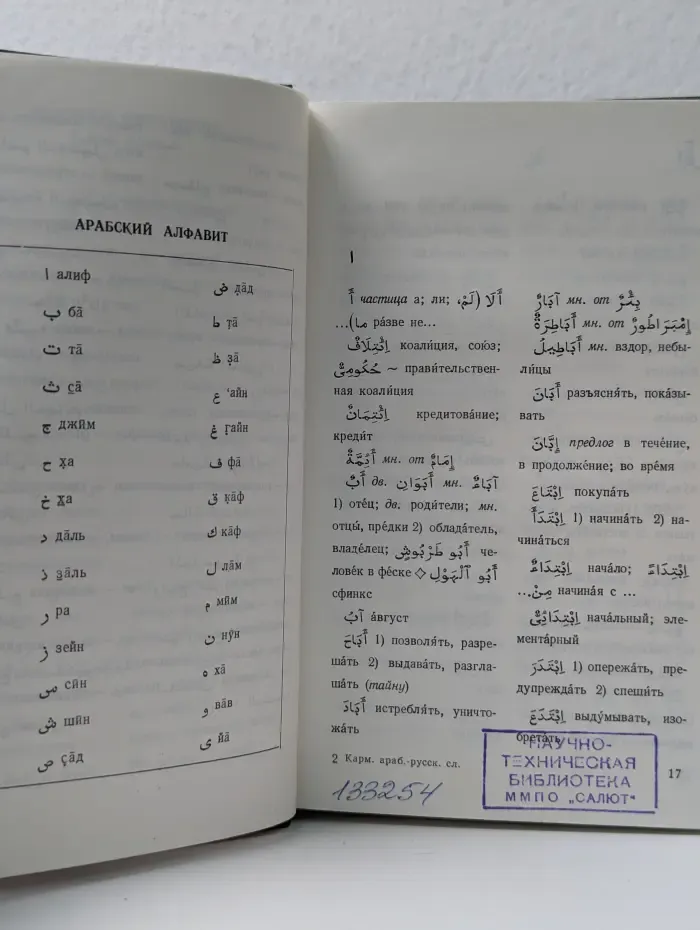 АРАБСКИЙ АЛФАВИТ
ا алиф
ب ба̄
ت та̄
ث с̱а̄
ج джӣм
ح х̣а
خ х̱а
د да̄ль
ذ з̱а̄ль
ر ра
ز зейн
س сӣн
ش шӣн
ص с̣а̄д
ض д̣а̄д
ط т̣а̄
ظ з̣а̄
ع ‘айн
غ г̣айн
ف фа̄
ق к̣а̄ф
ك ка̄ф
ل ла̄м
م мӣм
ن нӯн
ه ха̄
و ва̄в
ى йа̄
ا
أَ частица а; ли; أَلَا (لَمْ،
ما)... ра́зве не...
اِئْتِلَافٌ коали́ция, сою́з;
حُكُومِيٌّ ~ прави́тельствен-
ная коали́ция
اِئْتِمَانٌ кредитова́ние;
креди́т
أَئِمَّةٌ мн. от إِمَامٌ
أَبٌ дв. أَبَوَانِ мн. آبَاءٌ
1) оте́ц; дв. роди́тели; мн.
отцы́, пре́дки 2) облада́тель,
владе́лец; أَبُو طَرْبُوشٍ че-
лове́к в фе́ске ◇ أَبُو ٱلْهَوْلِ
сфинкс
آبُ а́вгуст
أَبَاحَ 1) позволя́ть, разре-
ша́ть 2) выдава́ть, разгла-
ша́ть (тайну)
أَبَادَ истребля́ть, уничто-
жа́ть
2 Карм. араб.-русск. сл.
133254
آبَارٌ мн. от بِئْرٌ
أَبَاطِرَةٌ мн. от إِمْبَرَاطُورٌ
أَبَاطِيلُ мн. вздор, небы-
ли́цы
أَبَانَ разъясня́ть, пока́зы-
вать
إِبَّانَ предлог в тече́ние,
в продолже́ние; во вре́мя
اِبْتَاعَ покупа́ть
اِبْتَدَأَ 1) начина́ть 2) на-
чина́ться
اِبْتِدَاءٌ нача́ло; اِبْتِدَاءً
مِنْ... начина́я с ...
اِبْتِدَائِيٌّ нача́льный; эле-
мента́рный
اِبْتَدَرَ 1) опережа́ть, пре-
дупрежда́ть 2) спеши́ть
اِبْتَدَعَ выду́мывать, изо-
брета́ть
НАУЧНО-
ТЕХНИЧЕСКАЯ
БИБЛИОТЕКА
ММПО „САЛЮТ"
17